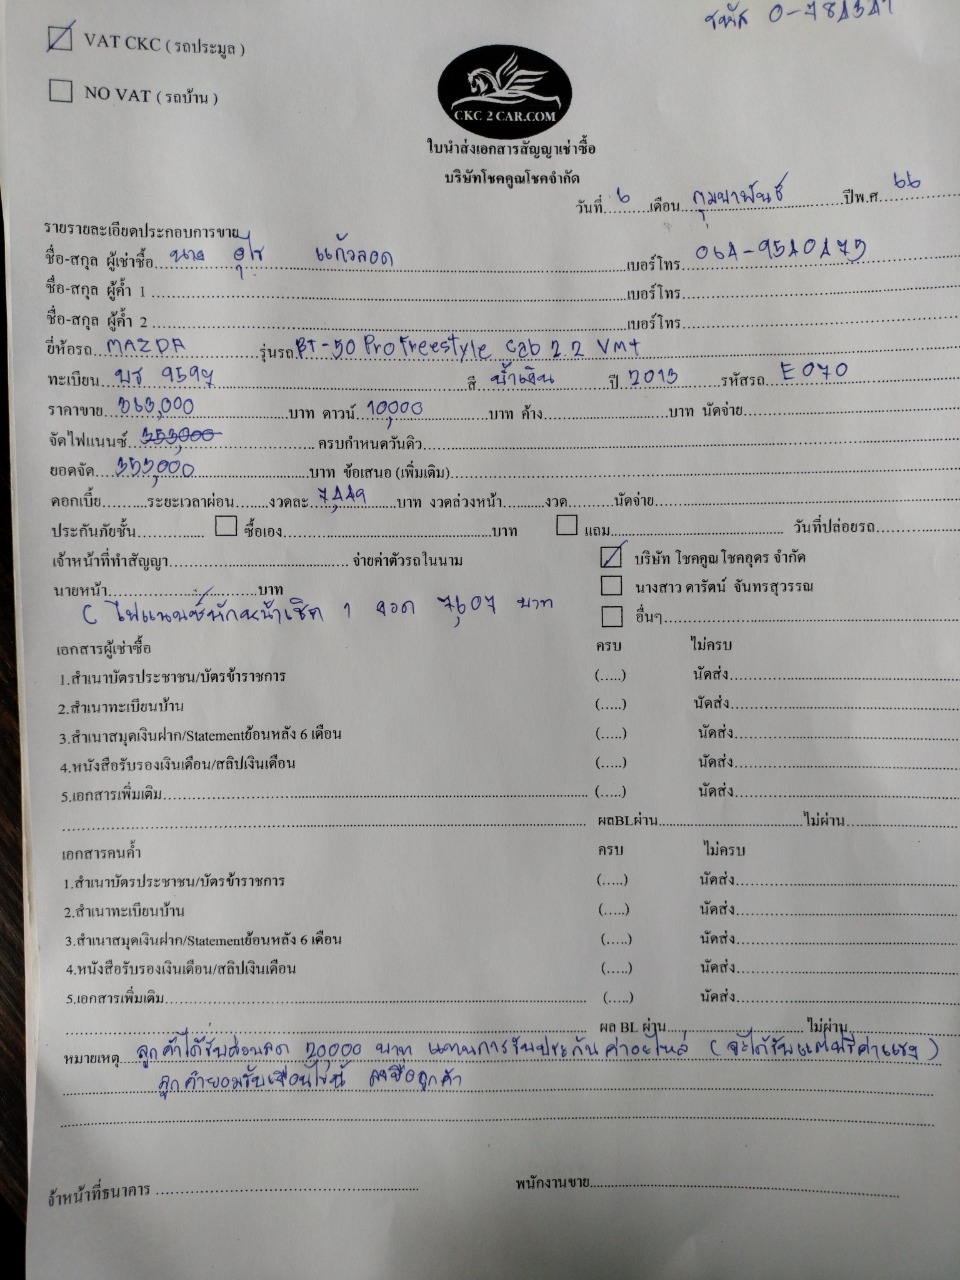 รหัส 0-784347
VAT CKC ( รถประมูล )
NO VAT ( รถบ้าน )
CKC 2 CAR.COM
ใบนำส่งเอกสารสัญญาเช่าซื้อ
บริษัทโชคคูณโชคจำกัด
วันที่ 6 เดือน กุมภาพันธ์ ปีพ.ศ. 66
รายรายละเอียดประกอบการขาย
ชื่อ-สกุล ผู้เช่าซื้อ นาง อุไร แก้วลอด เบอร์โทร 064-9510175
ชื่อ-สกุล ผู้ค้ำ 1 เบอร์โทร
ชื่อ-สกุล ผู้ค้ำ 2 เบอร์โทร
ยี่ห้อรถ MAZDA รุ่นรถ BT-50 Pro Freestyle Cab 2.2 VMT
ทะเบียน บร 9597 สี น้ำเงิน ปี 2013 รหัสรถ E070
ราคาขาย 363,000 บาท ดาวน์ 10,000 บาท ค้าง บาท นัดจ่าย
จัดไฟแนนซ์ 353,000 ครบกำหนดวันดิว
ยอดจัด 353,000 บาท ข้อเสนอ (เพิ่มเติม)
ดอกเบี้ย ระยะเวลาผ่อน งวดละ 7,449 บาท งวดล่วงหน้า งวด นัดจ่าย
ประกันภัยชั้น ซื้อเอง บาท แถม วันที่ปล่อยรถ
เจ้าหน้าที่ทำสัญญา จ่ายค่าตัวรถในนาม บริษัท โชคคูณโชคอุดร จำกัด
นายหน้า บาท นางสาว ดารัตน์ จันทรสุวรรณ
( ไฟแนนซ์หักหน้าเช็ค 1 งวด 7,607 บาท อื่นๆ
เอกสารผู้เช่าซื้อ ครบ ไม่ครบ
1.สำเนาบัตรประชาชน/บัตรข้าราชการ (.....) นัดส่ง
2.สำเนาทะเบียนบ้าน (.....) นัดส่ง
3.สำเนาสมุดเงินฝาก/Statementย้อนหลัง 6 เดือน (.....) นัดส่ง
4.หนังสือรับรองเงินเดือน/สลิปเงินเดือน (.....) นัดส่ง
5.เอกสารเพิ่มเติม (.....) นัดส่ง
ผลBLผ่าน ไม่ผ่าน
เอกสารคนค้ำ ครบ ไม่ครบ
1.สำเนาบัตรประชาชน/บัตรข้าราชการ (.....) นัดส่ง
2.สำเนาทะเบียนบ้าน (.....) นัดส่ง
3.สำเนาสมุดเงินฝาก/Statementย้อนหลัง 6 เดือน (.....) นัดส่ง
4.หนังสือรับรองเงินเดือน/สลิปเงินเดือน (.....) นัดส่ง
5.เอกสารเพิ่มเติม (.....) นัดส่ง
ผล BL ผ่าน ไม่ผ่าน
หมายเหตุ ลูกค้าได้รับส่วนลด 20,000 บาท แทนการรับประกันค่าอะไหล่ (จะได้รับแต่ฟรีค่าแรง)
ลูกค้ายอมรับเงื่อนไขนี้ ลงชื่อลูกค้า
จ้าหน้าที่ธนาคาร พนักงานขาย